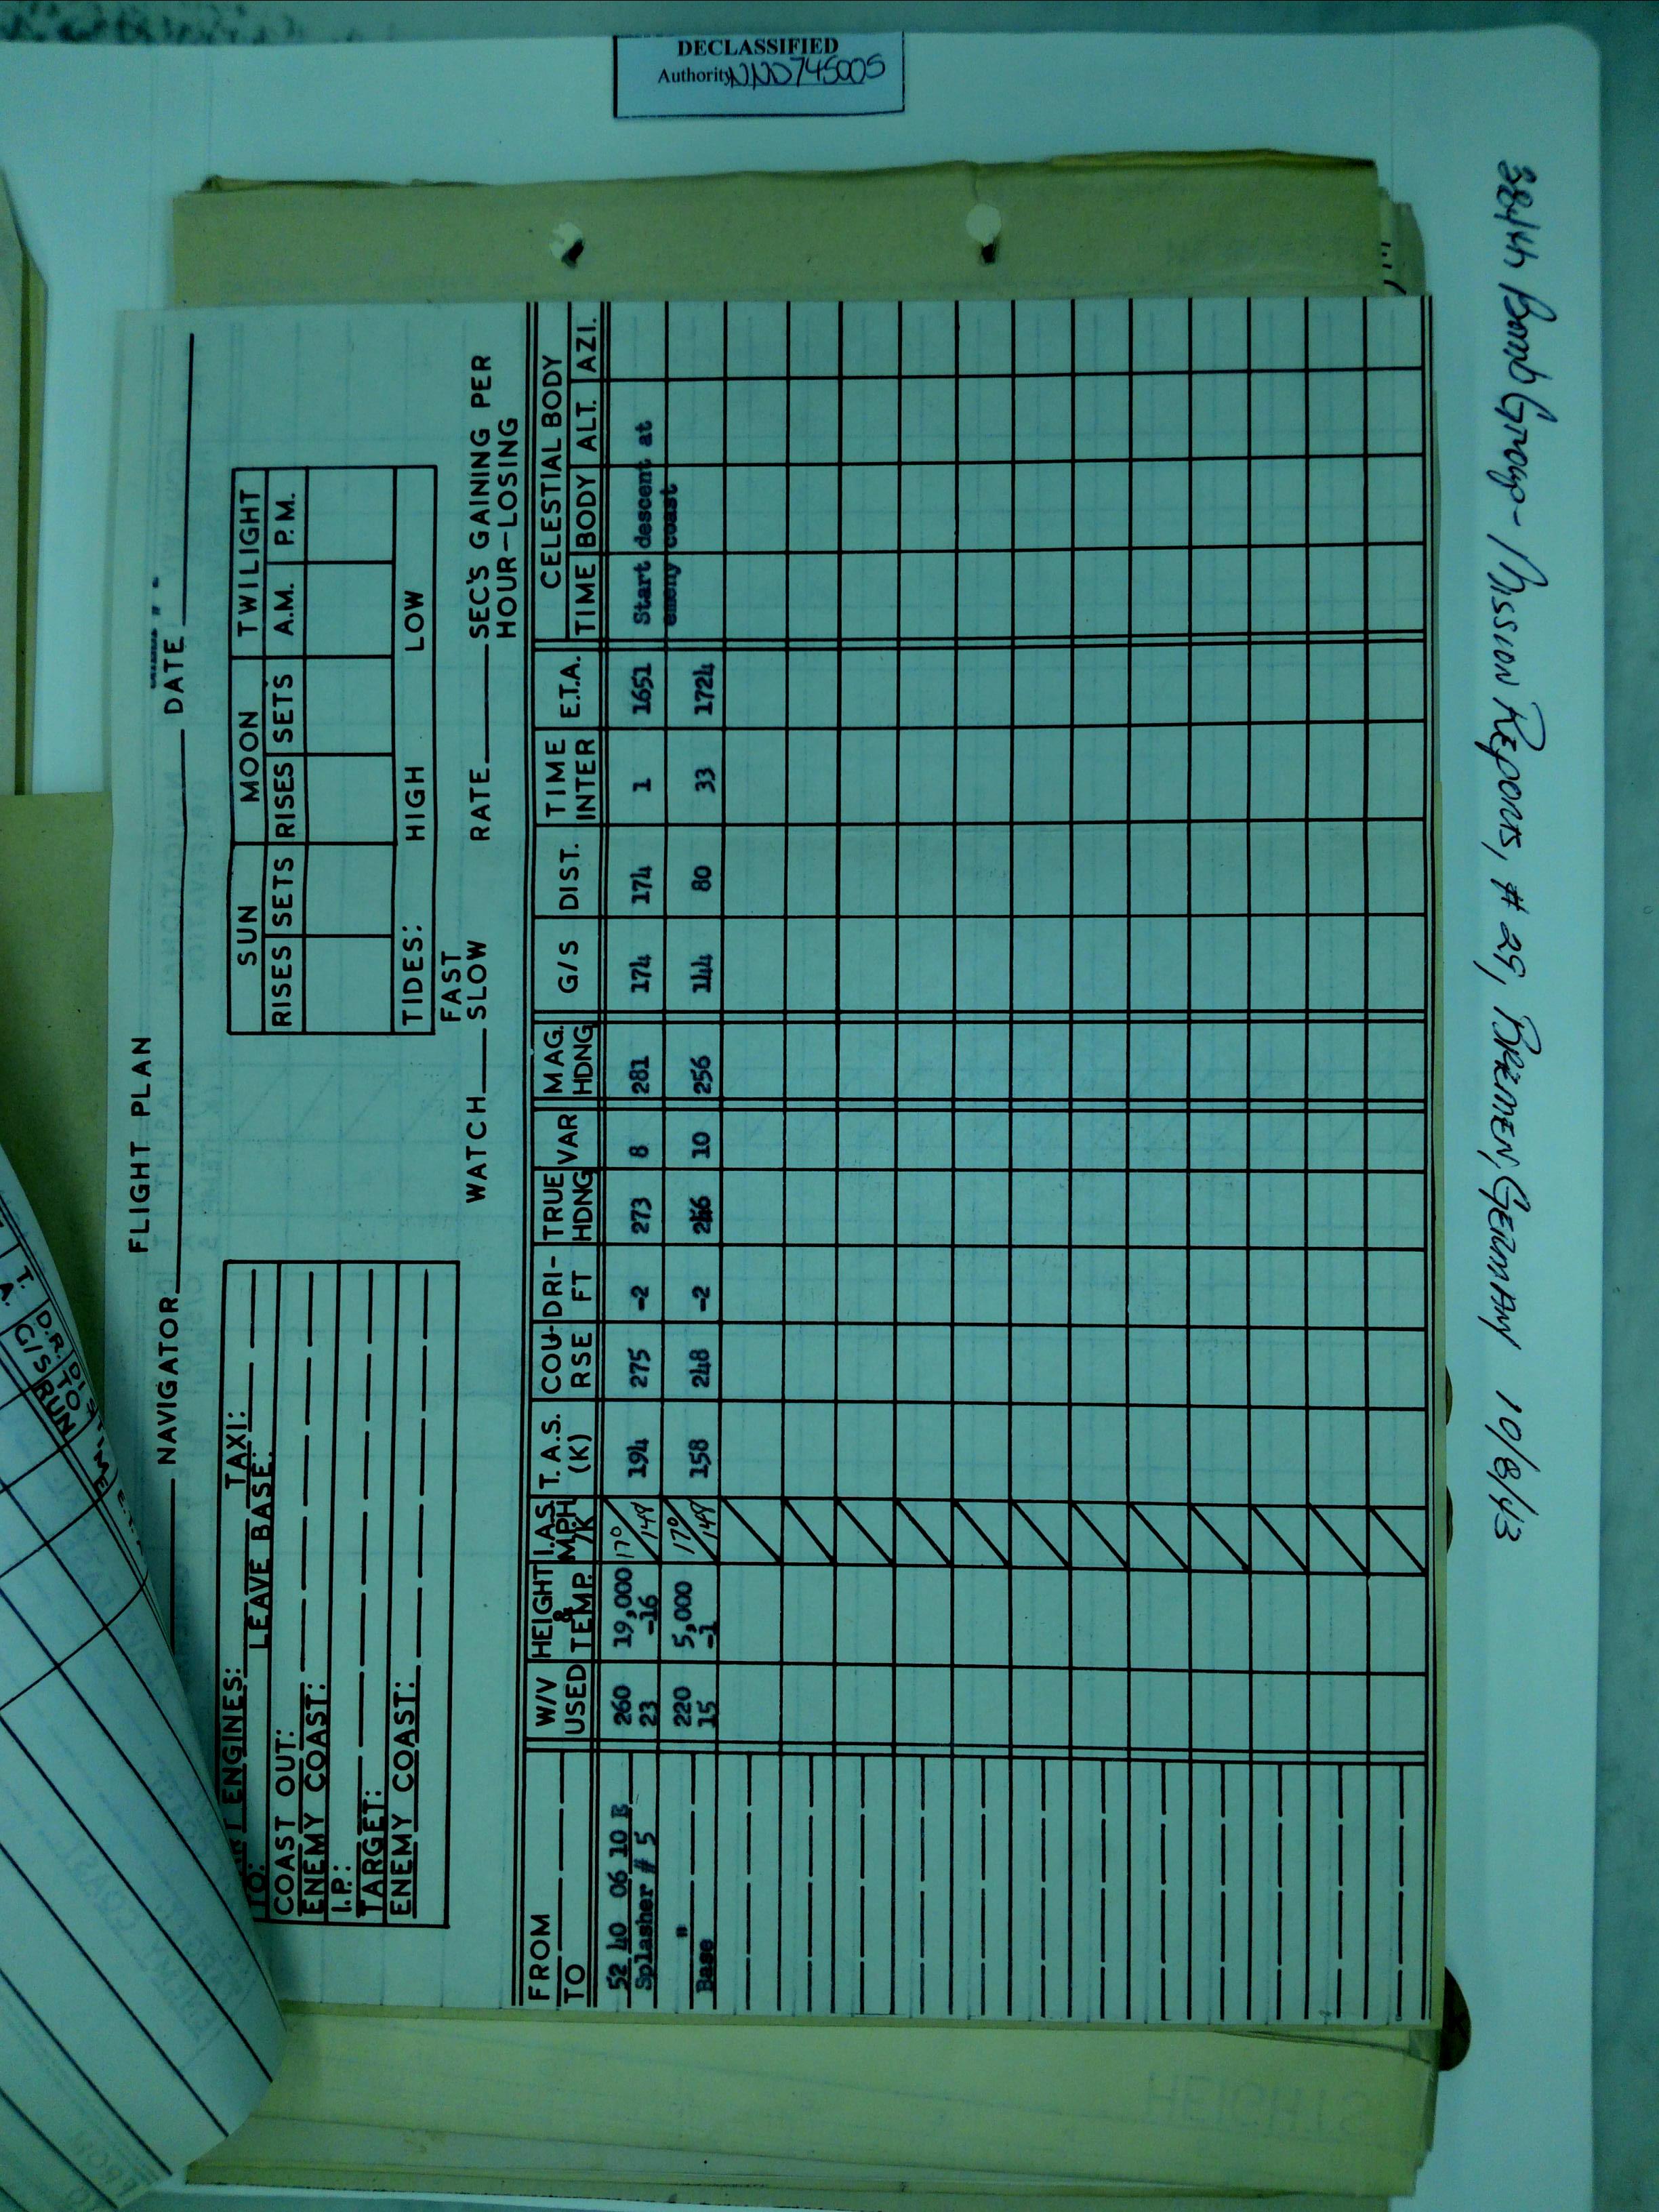 DECLASSIFIED
Authority NND745005
384th Bomb Group - Mission Reports, # 25, BREMEN, GERMANY 10/8/43
FLIGHT PLAN
NAVIGATOR DATE
ENGINES: TAXI:
TO: LEAVE BASE:
COAST OUT:
ENEMY COAST:
I.P.:
TARGET:
ENEMY COAST:
SUN MOON TWILIGHT
RISES SETS RISES SETS A.M. P.M.
TIDES: HIGH LOW
WATCH FAST SLOW RATE SEC'S GAINING PER HOUR-LOSING
FROM TO W/V USED HEIGHT & TEMP. I.A.S. MPH /K T.A.S. (K) COU-RSE DRI-FT TRUE HDNG VAR MAG. HDNG G/S DIST. TIME INTER E.T.A. CELESTIAL BODY
TIME BODY ALT. AZI.
52 40 06 10 E 260 19,000 170 194 275 -2 273 8 281 174 174 1 1651 Start descent at
Splasher # 5 23 -16 148 enemy coast
" 220 5,000 170 158 248 -2 246 10 256 144 80 33 1724
Base 15 -1 148
T. D.R. DIST.
A. G/S TO TIME
RUN